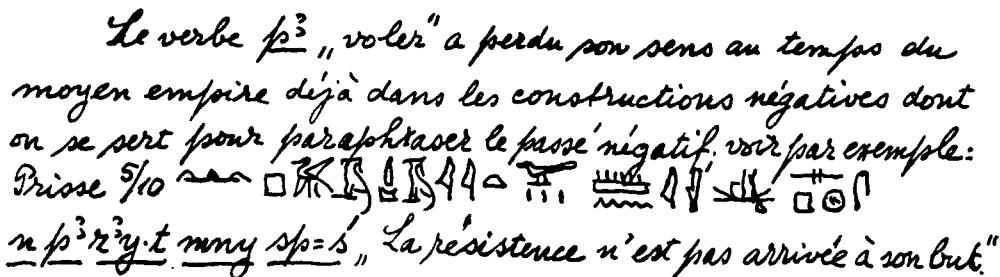 Le verbe p³ „voler" a perdu son sens au temps du
moyen empire déjà dans les constructions négatives dont
on se sert pour paraphraser le passé négatif. voir par exemple:
Prisse 5/10
n p³ r³y·t mny sp=ś „La résistence n'est pas arrivée à son but."